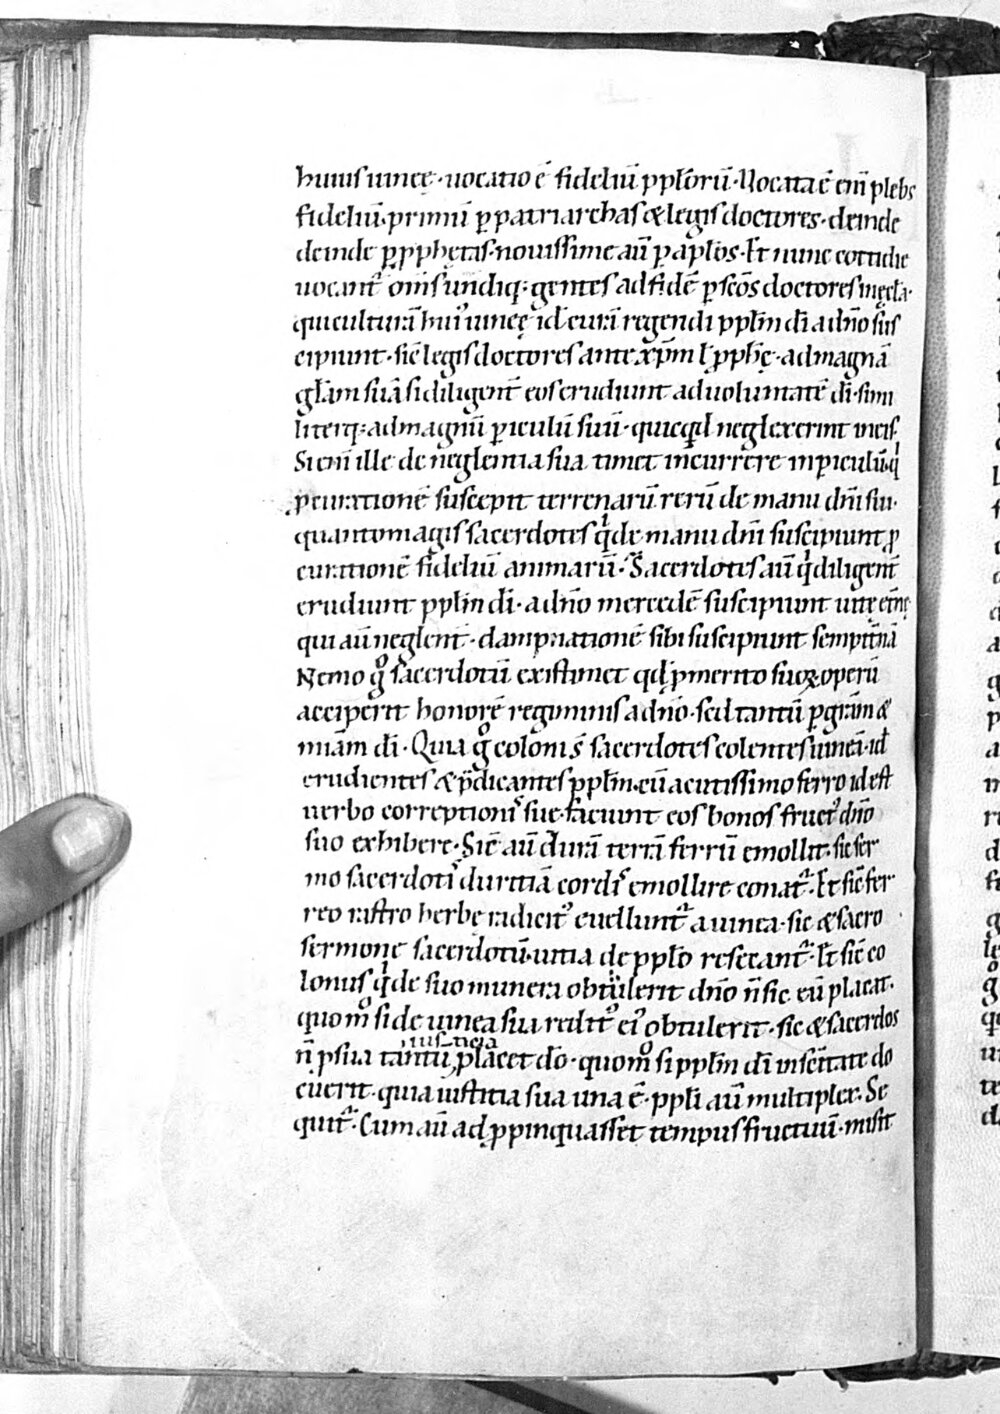 huius uineę · uocatio ē fideliū pplōrū · Uocata ē eni̅ plebs
fideliū · primū p̱ patriarchas & legis doctores · deinde
deinde p̱ ꝓphetas · nouissime aū p̱ aplōs · Et nunc cottidie
uocant᷑ om̅s undiq; gentes ad fidē p̱ sc̅os doctores in ęcla ·
qui culturā hui᷒ uineę id̅ curā regendi pplm̅ di̅ a dn̅o sus
cipiunt · sic̅ legis doctores ante xp̅m l̅ ꝓphe̅ · ad magnā
glām suā si diligent̅ eos erudiunt ad uoluntatē di̅ · simi
literq; ad magnū p̱iculū suū · quicq̇d neglexerint in eis ·
Si eni̅ ille de neglentia sua timet incurrere in p̱iculū · q̇
ꝓcurationē suscepit terrenarū rerū de manu dn̅i sui ·
quanto magis sacerdotes q̇ de manu dn̅i suscipiunt ꝓ
curationē fideliū animarū · Sacerdotes aū q̇ diligent̅
erudiunt pplm̅ di̅ · a dn̅o mercedē suscipiunt uitę et̅nę
qui aū neglent̅ · dampnationē sibi suscipiunt sempit̅nā
Nemo g° sacerdotū existimet qd̅ p̱ merito suoꝝ operū
acciperit honorē regiminis a dn̅o · sed tantū p̱ gra̅m &
mi̅am di̅ · Quia g° coloni s̅ sacerdotes colentes uineā · id̅
erudientes & p̅dicantes pplm̅ · cū acutissimo ferro id est
uerbo correptioni᷒ suę · faciunt eos bonos fruct᷒ dn̅o
suo exhibere · Sic̅ aū durā terrā ferrū emollit · sic ser
mo sacerdoti᷒ duritiā cordi᷒ emollire conat᷑ · Et sic̅ fer
reo rastro herbe radicit᷒ euellunt᷑ a uinea · sic & sacro
sermone sacerdotū · uitia de pplo̅ resecant᷑ · Et sic̅ co
lonus q̇ de suo munera obtulerit dn̅o n̅ sic eū placat ·
quom° si de uinea sua reddit᷒ ei᷒ obtulerit · sic & sacerdos
n̅ p̱ sua tantū iusticia placet do̅ · quom° si pplm̅ di̅ in sc̅itate do
cuerit · quia iustitia sua una ē · ppli̅ aū multiplex · Se
quit᷑ · Cum aū adꝓpinquasset tempus fructuū · misit